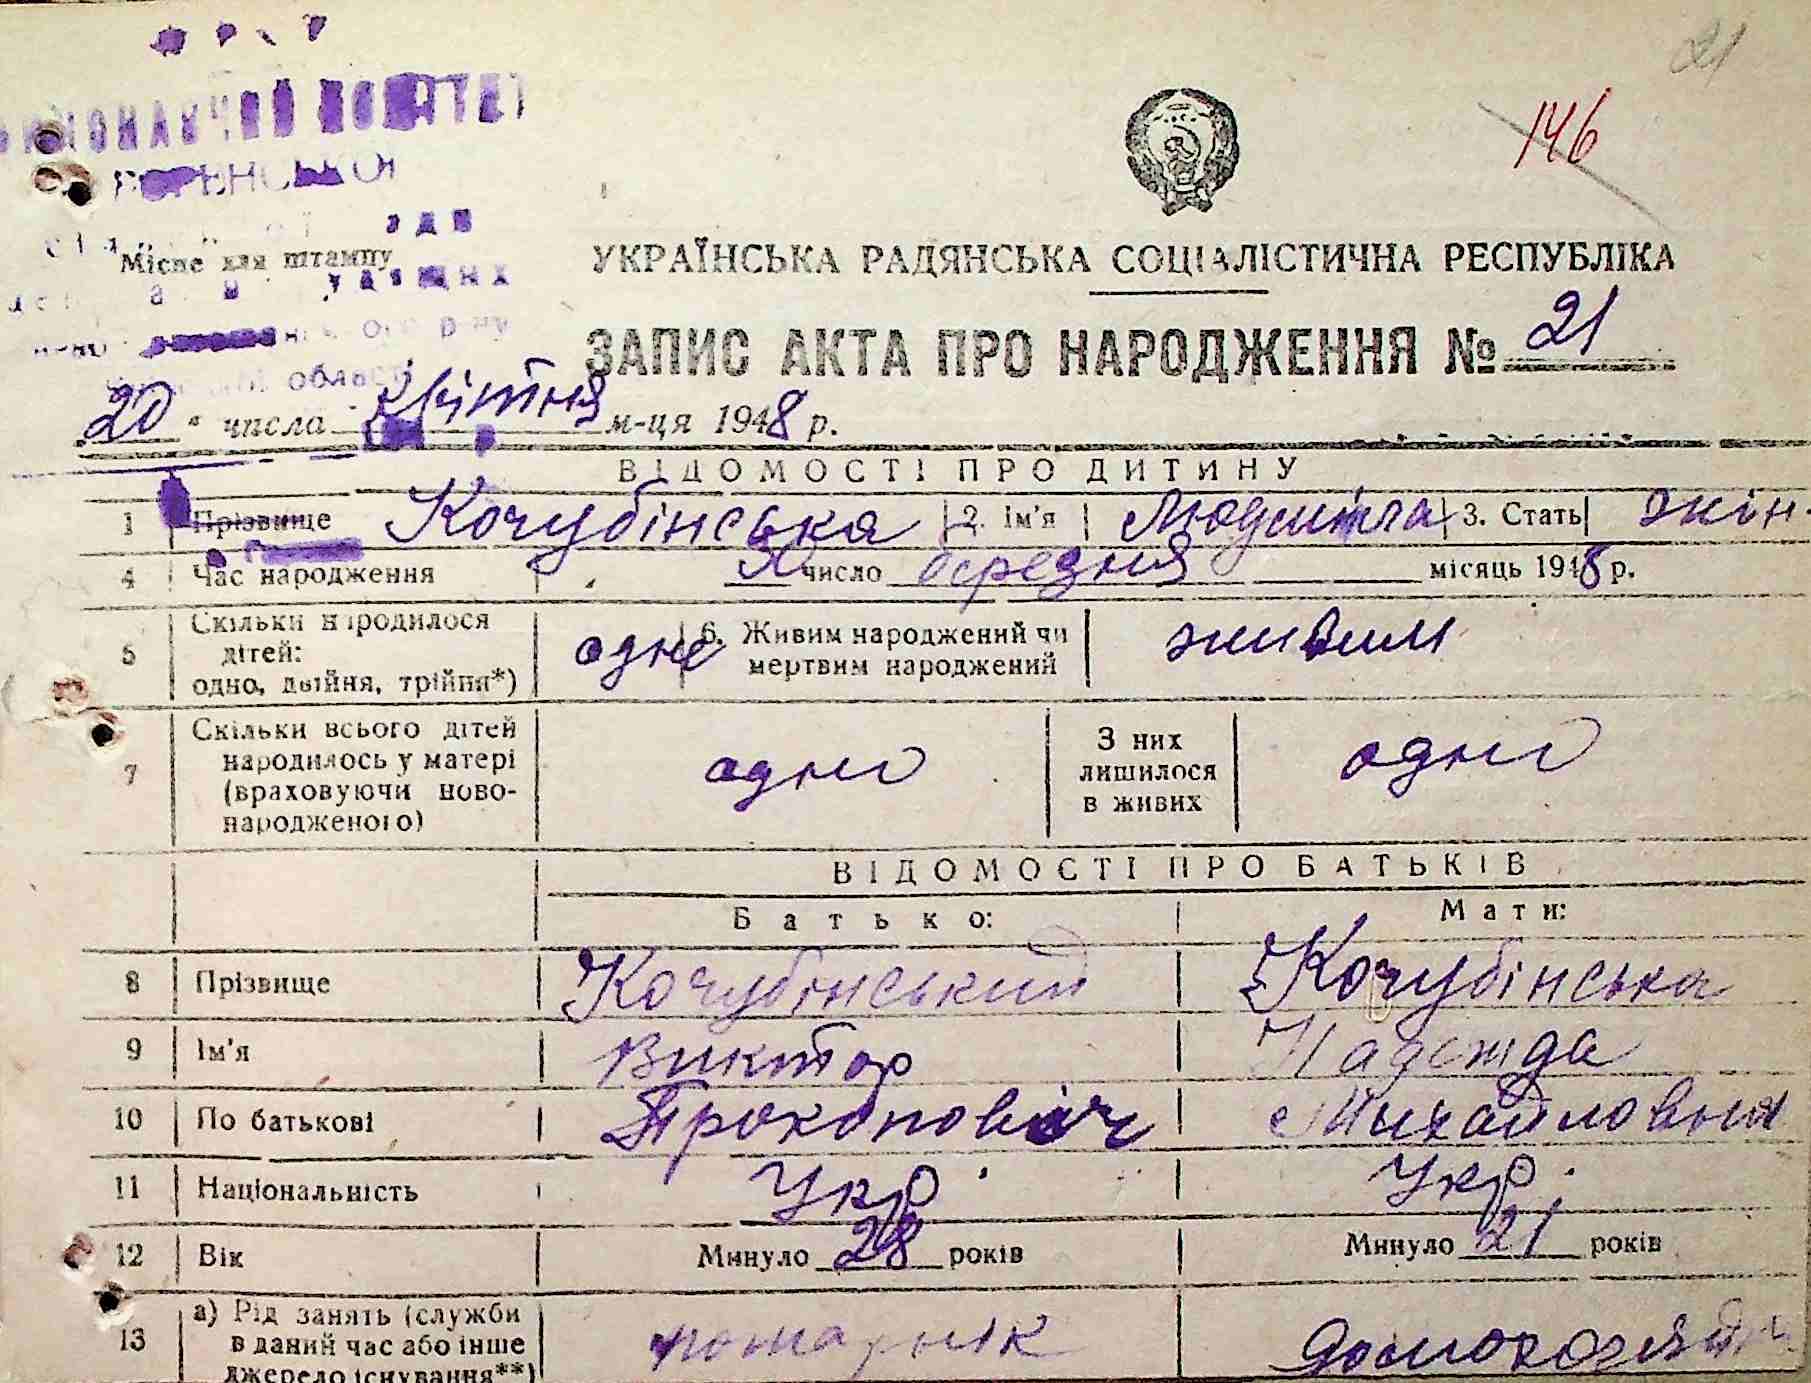 21
146
ВИКОНАВЧИЙ КОМІТЕТ
Місце для штампу
УКРАЇНСЬКА РАДЯНСЬКА СОЦІАЛІСТИЧНА РЕСПУБЛІКА
ЗАПИС АКТА ПРО НАРОДЖЕННЯ № 21
області
20 " числа квітня м-ця 1948 р.
ВІДОМОСТІ ПРО ДИТИНУ
1 Прізвище Кочубінська 2. Ім'я Людмила 3. Стать жін.
4 Час народження число березня місяць 1948 р.
5 Скільки народилося дітей: одно, двійня, трійня*) одне 6. Живим народжений чи мертвим народжений живим
7 Скільки всього дітей народилось у матері (враховуючи новонародженого) одно З них лишилося в живих одно
ВІДОМОСТІ ПРО БАТЬКІВ
Батько: Мати:
8 Прізвище Кочубінський Кочубінська
9 Ім'я Виктор Надежда
10 По батькові Прокопович Михайловная
11 Національність Укр. Укр.
12 Вік Минуло 28 років Минуло 21 років
13 а) Рід занять (служби в даний час або інше джерело існування**)